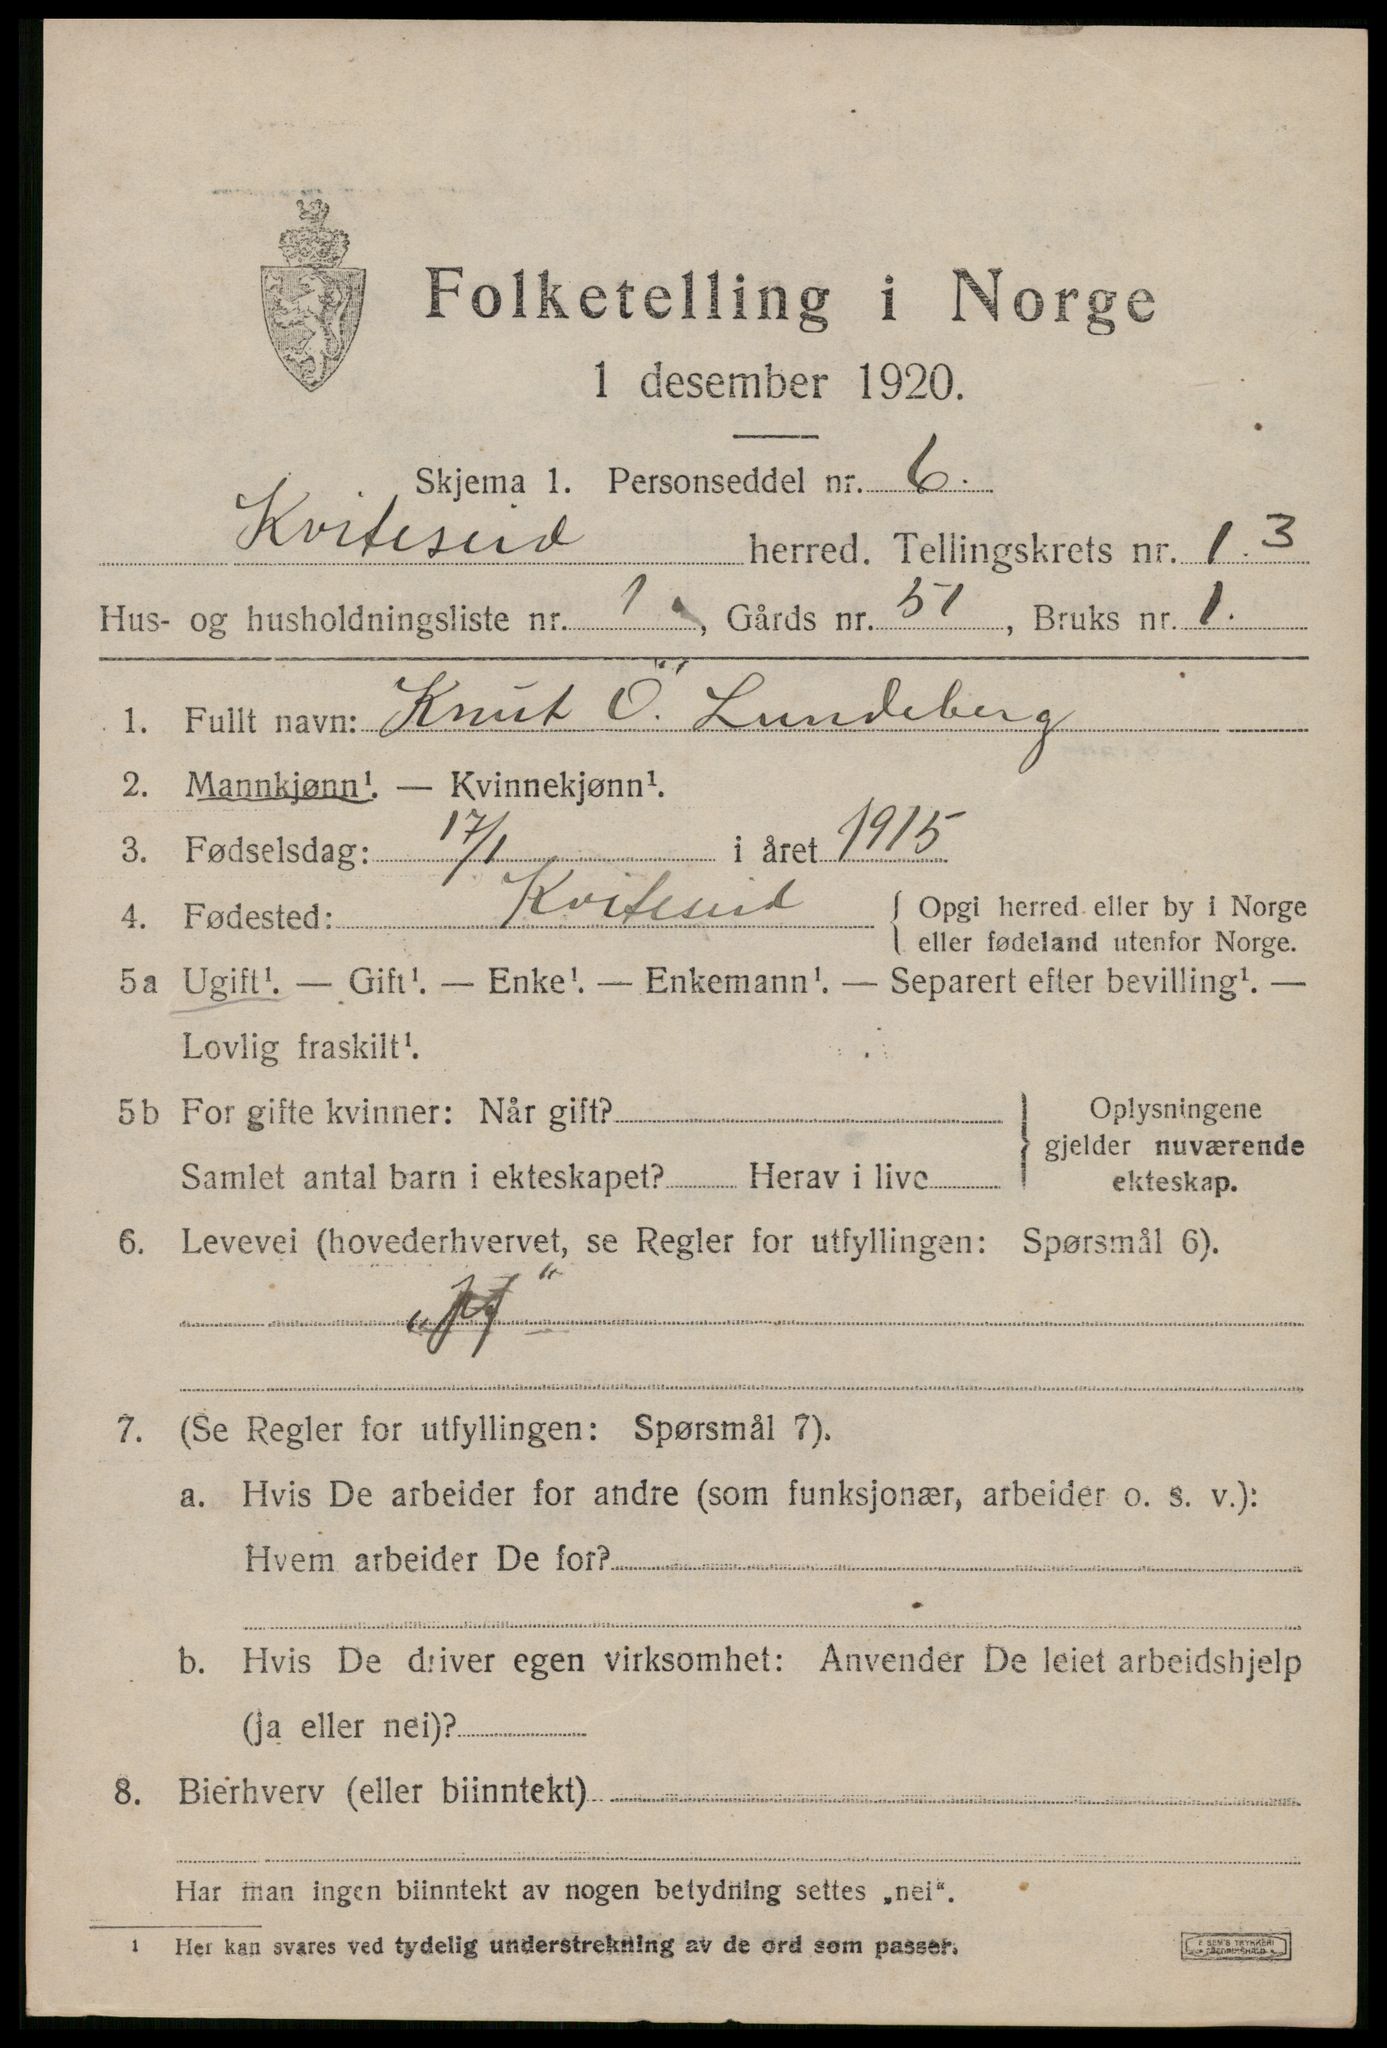 Folketelling i Norge
1 desember 1920.
Skjema 1. Personseddel nr. 6.
Kviteseid herred. Tellingskrets nr. 1. 3
Hus- og husholdningsliste nr. 1, Gårds nr. 51, Bruks nr. 1.
1. Fullt navn: Knut Ö. Lundeberg
2. Mannkjønn¹. — Kvinnekjønn¹.
3. Fødselsdag: 17/1 i året 1915
4. Fødested: Kviteseid { Opgi herred eller by i Norge
eller fødeland utenfor Norge.
5a Ugift¹. — Gift¹. — Enke¹. — Enkemann¹. — Separert efter bevilling¹. —
Lovlig fraskilt¹.
5b For gifte kvinner: Når gift? } Oplysningene
gjelder nuværende
Samlet antal barn i ekteskapet? Herav i live ekteskap.
6. Levevei (hovederhvervet, se Regler for utfyllingen: Spørsmål 6).
7. (Se Regler for utfyllingen: Spørsmål 7).
a. Hvis De arbeider for andre (som funksjonær, arbeider o. s. v.):
Hvem arbeider De for?
b. Hvis De driver egen virksomhet: Anvender De leiet arbeidshjelp
(ja eller nei)?
8. Bierhverv (eller biinntekt)
Har man ingen biinntekt av nogen betydning settes „nei“.
1 Her kan svares ved tydelig understrekning av de ord som passer.
E SEM'S TRYKKERI
FREDRIKSHALD